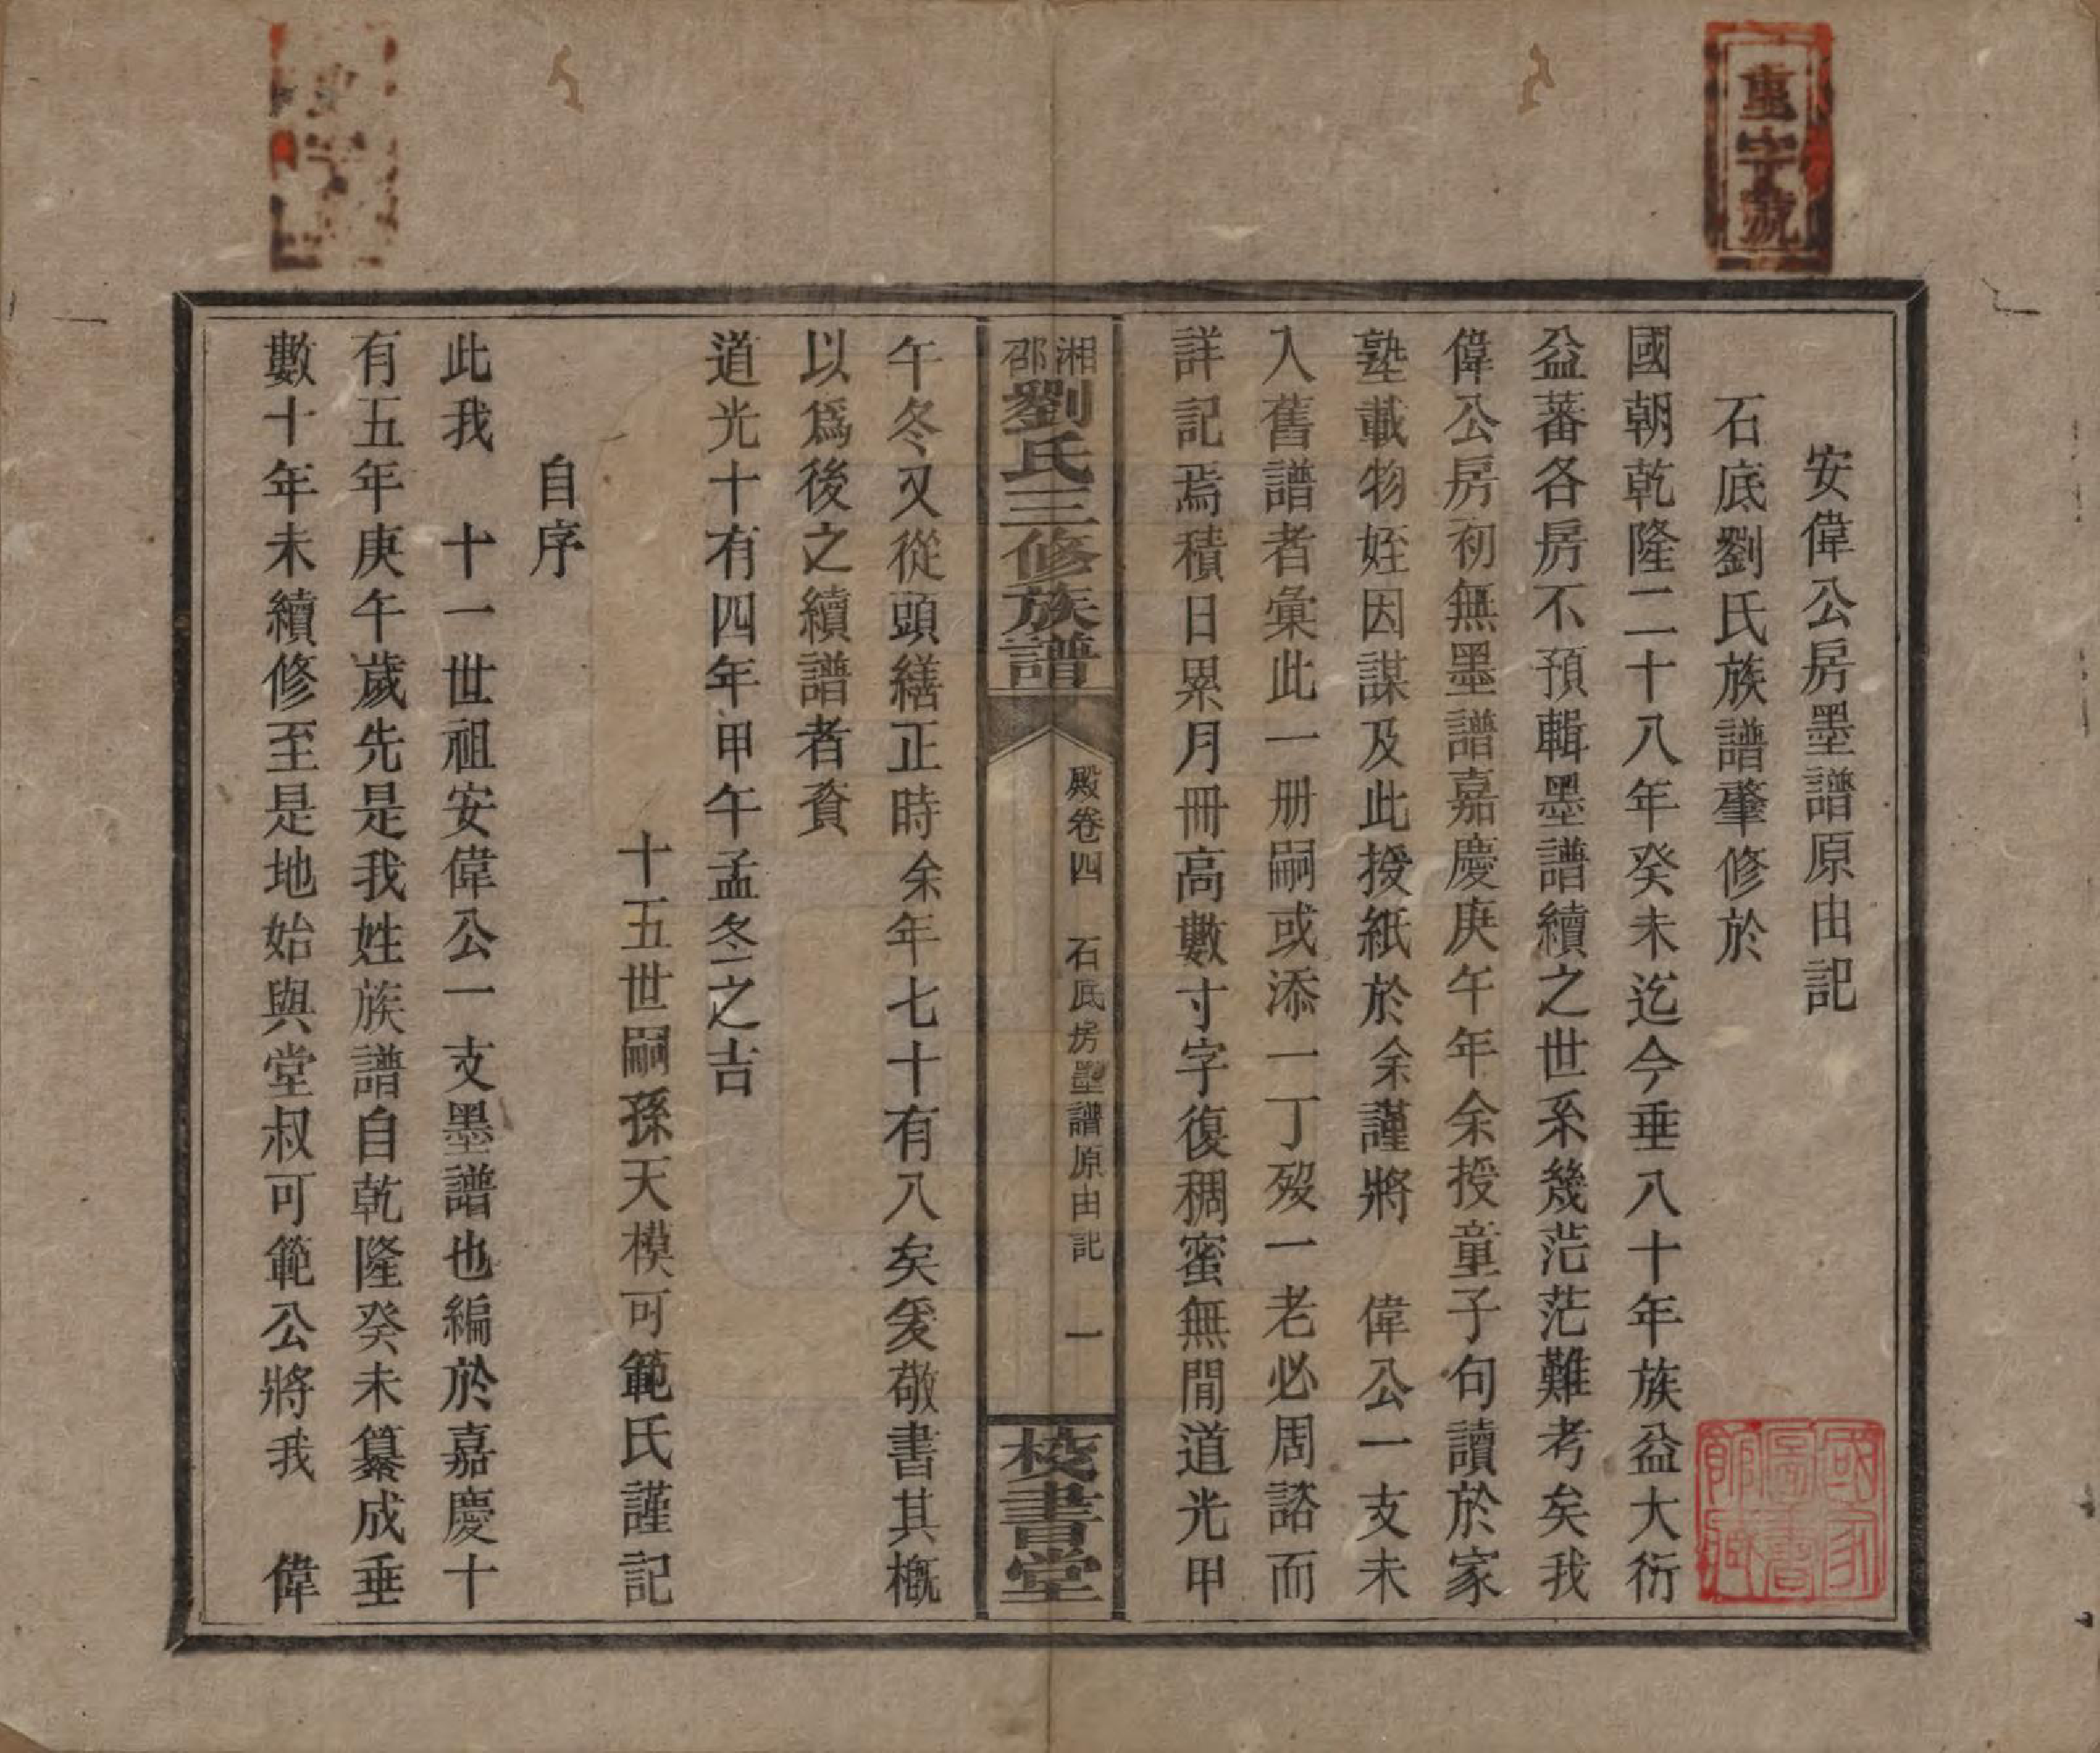 重字號
安偉公房墨譜原由記
石底劉氏族譜肇修於
國朝乾隆二十八年癸未迄今垂八十年族益大衍
益蕃各房不預輯墨譜續之世系幾茫茫難考矣我
偉公房初無墨譜嘉慶庚午年余授童子句讀於家
塾載物姪因謀及此授紙於余謹將　偉公一支未
入舊譜者彙此一册嗣或添一丁歿一老必周諮而
詳記焉積日累月冊高數寸字復稠蜜無閒道光甲
湘邵劉氏三修族譜　殿卷四　石底房墨譜原由記　一　校書堂
午冬又從頭繕正時余年七十有八矣爰敬書其概
以爲後之續譜者資
道光十有四年甲午孟冬之吉
十五世嗣孫天模可範氏謹記
自序
此我　十一世祖安偉公一支墨譜也編於嘉慶十
有五年庚午歲先是我姓族譜自乾隆癸未纂成垂
數十年未續修至是地始與堂叔可範公將我　偉
國家圖書館藏